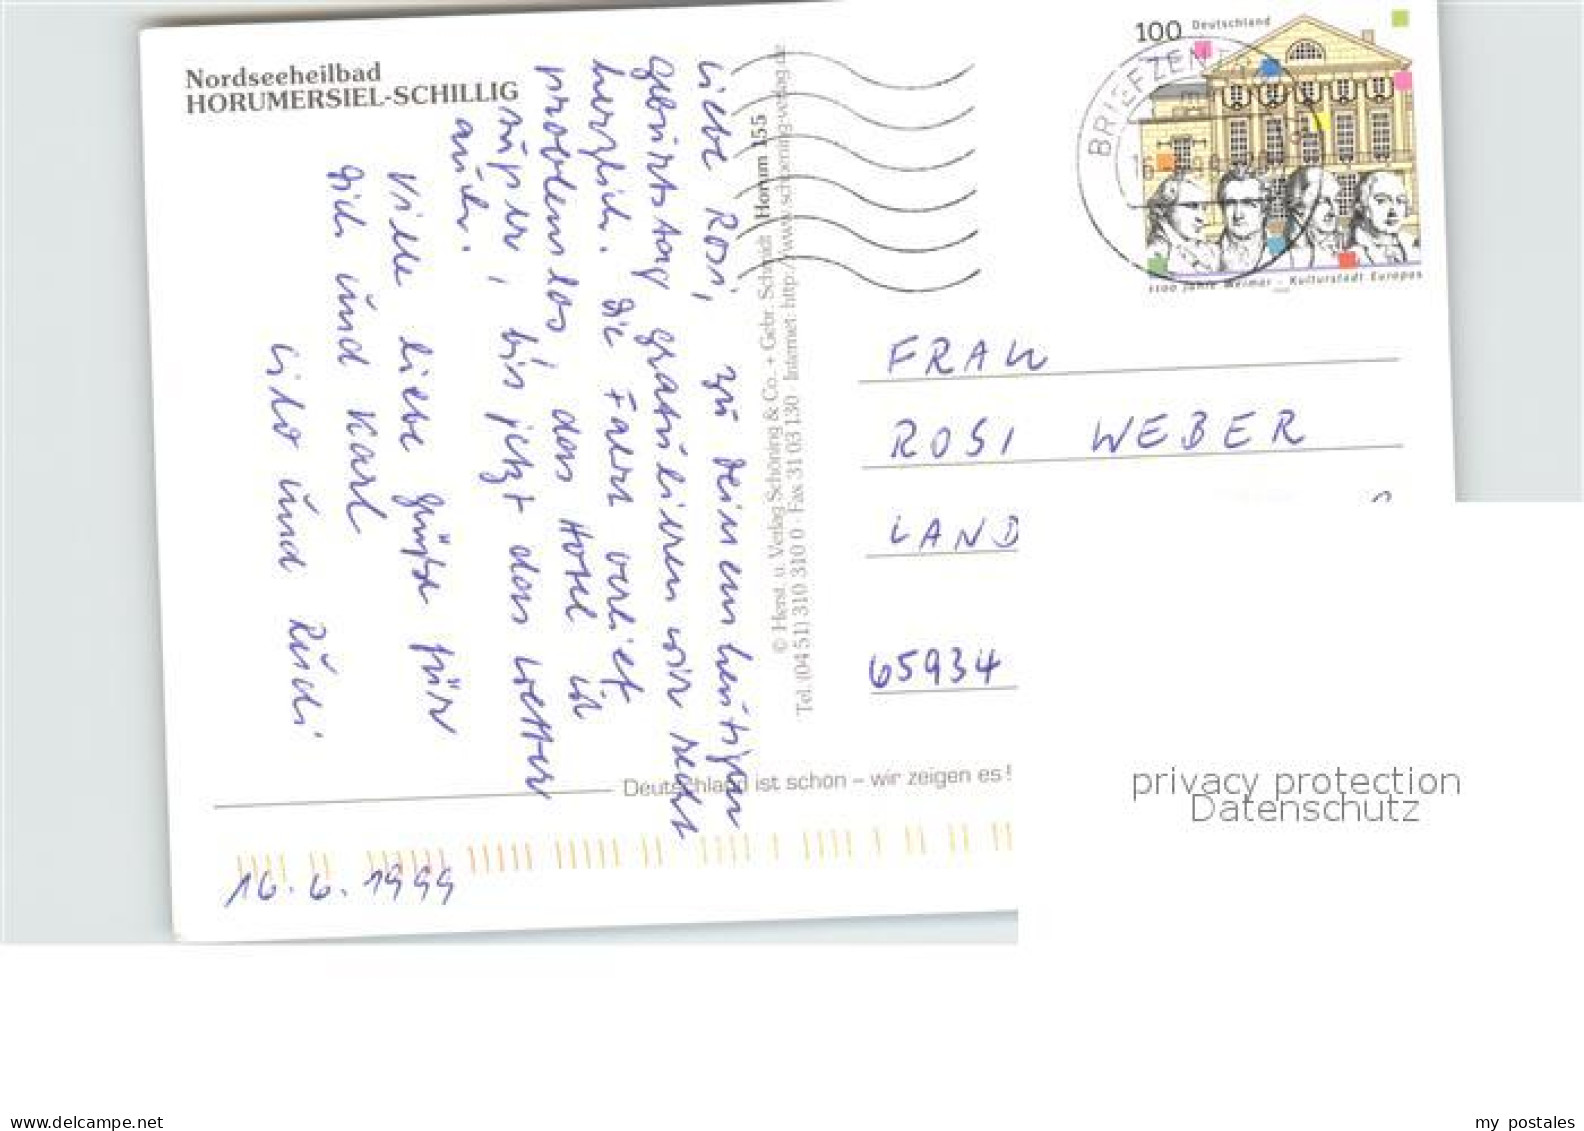 Nordseeheilbad
HORUMERSIEL-SCHILLIG
Liebe Rosi, zu Deinem heutigen
Geburtstag gratulieren wir recht
herzlich. Die Fahrt verlief
problemlos das Hotel ist
super, bis jetzt das Wetter
auch.
Viele liebe Grüße für
Dich und Karl
Lilo und Rudi
16.6.1999
© Herst. u. Verlag Schöning & Co. + Gebr. Schmidt Horum 155
Tel. (04 51) 310 310 0 · Fax 31 03 130 · Internet: http://www.schoening-verlag.de
Deutschland ist schön – wir zeigen es!
100 Deutschland
BRIEFZEN
1100 Jahre Weimar - Kulturstadt Europas
FRAU
ROSI WEBER
LAND
65934
privacy protection
Datenschutz
www.delcampe.net
my postales